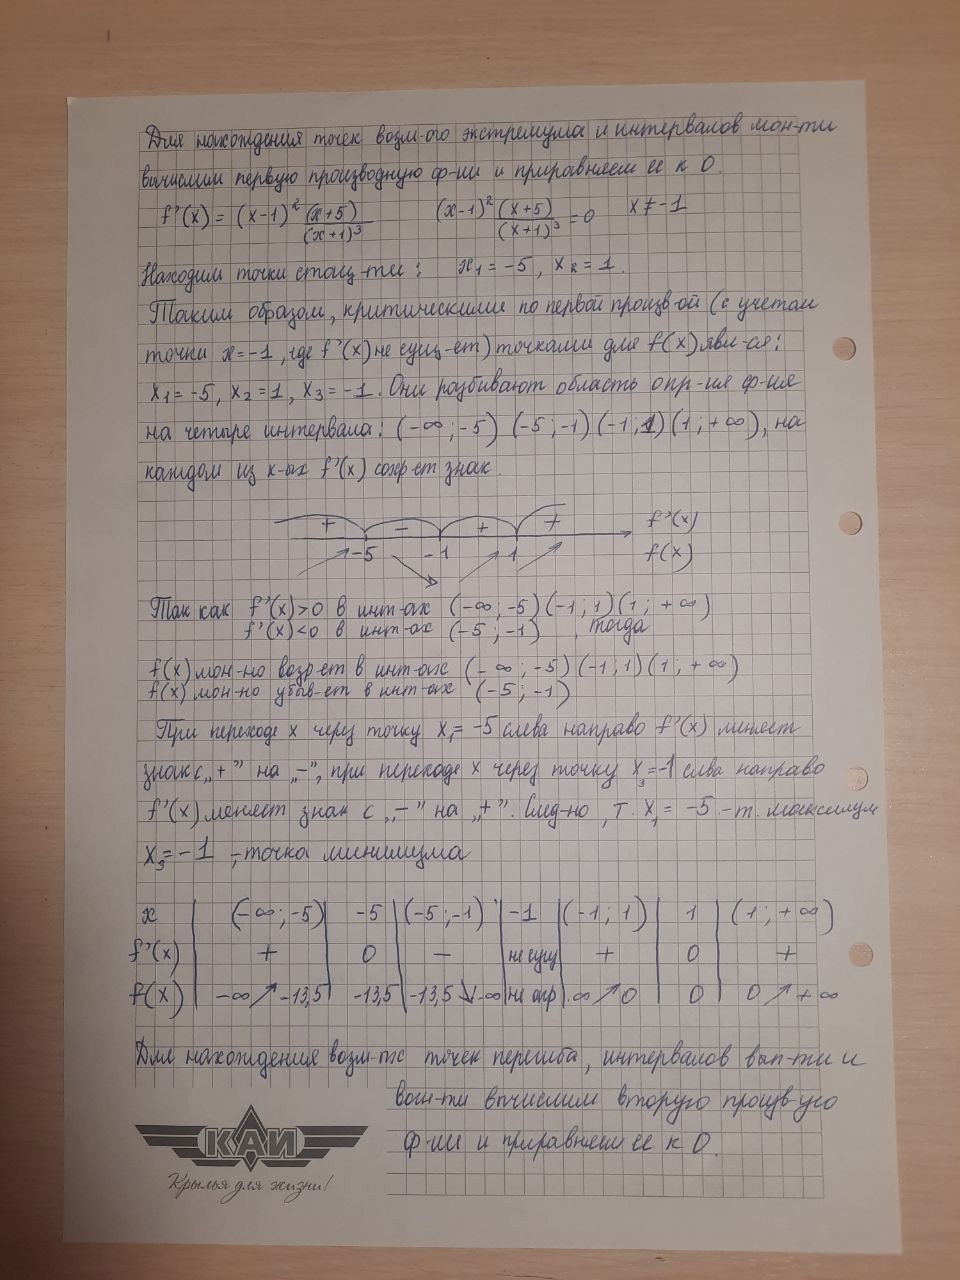 Для нахождения точек возм-ого экстремума и интервалов мон-ти
вычислим первую производную ф-ии и приравняем ее к 0.
f'(x) = (x-1)² (x+5)/(x+1)³     (x-1)² (x+5)/(x+1)³ = 0     x ≠ -1
Находим точки стац-ти: x₁ = -5, x₂ = 1.
Таким образом, критическими по первой произв-ой (с учетом
точки x = -1, где f'(x) не сущ-ет) точками для f(x) явл-ся:
x₁ = -5, x₂ = 1, x₃ = -1. Они разбивают область опр-ия ф-ия
на четыре интервала: (-∞; -5) (-5; -1) (-1; 1) (1; +∞), на
каждом из к-ых f'(x) сохр-ет знак.
+ - + + f'(x)
-5 -1 1 f(x)
Так как f'(x) > 0 в инт-ах (-∞; -5) (-1; 1) (1; +∞)
f'(x) < 0 в инт-ах (-5; -1), тогда
f(x) мон-но возр-ет в инт-ах (-∞; -5) (-1; 1) (1; +∞)
f(x) мон-но убыв-ет в инт-ах (-5; -1)
При переходе x через точку x₁ = -5 слева направо f'(x) меняет
знак с „+" на „-", при переходе x через точку x₃ = -1 слева направо
f'(x) меняет знак с „-" на „+". След-но, т. x₁ = -5 - т. максимум
x₃ = -1 - точка минимума
x | (-∞; -5) | -5 | (-5; -1) | -1 | (-1; 1) | 1 | (1; +∞)
f'(x) | + | 0 | - | не сущ | + | 0 | +
f(x) | -∞ ↗ -13,5 | -13,5 | -13,5 ↘ -∞ | не опр | -∞ ↗ 0 | 0 | 0 ↗ +∞
Для нахождения возм-ых точек перегиба, интервалов вып-ти и
вогн-ти вычислим вторую произв-ую
ф-ии и приравняем ее к 0.
КАИ
Крылья для жизни!